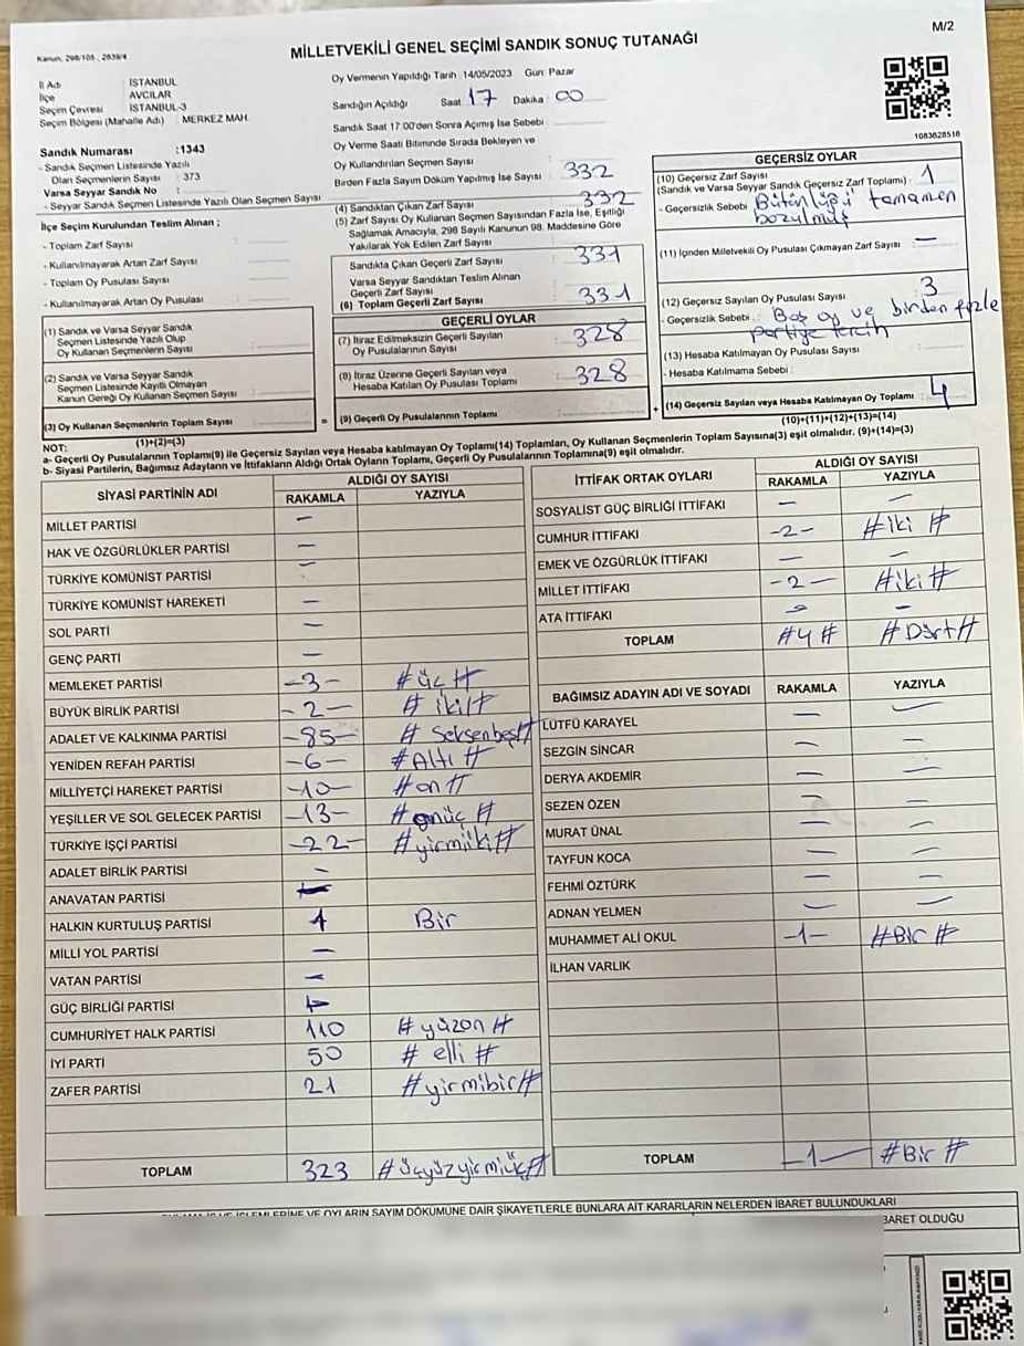 Kanun: 298/105 , 2839/4
M/2
MİLLETVEKİLİ GENEL SEÇİMİ SANDIK SONUÇ TUTANAĞI
İl Adı : İSTANBUL
İlçe : AVCILAR
Seçim Çevresi : İSTANBUL-3
Seçim Bölgesi (Mahalle Adı) : MERKEZ MAH.
Sandık Numarası :1343
- Sandık Seçmen Listesinde Yazılı
Olan Seçmenlerin Sayısı : 373
Varsa Seyyar Sandık No :
- Seyyar Sandık Seçmen Listesinde Yazılı Olan Seçmen Sayısı
İlçe Seçim Kurulundan Teslim Alınan ;
- Toplam Zarf Sayısı :
- Kullanılmayarak Artan Zarf Sayısı :
- Toplam Oy Pusulası Sayısı :
- Kullanılmayarak Artan Oy Pusulası :
(1) Sandık ve Varsa Seyyar Sandık
Seçmen Listesinde Yazılı Olup
Oy Kullanan Seçmenlerin Sayısı :
(2) Sandık ve Varsa Seyyar Sandık
Seçmen Listesinde Kayıtlı Olmayan
Kanun Gereği Oy Kullanan Seçmen Sayısı :
(3) Oy Kullanan Seçmenlerin Toplam Sayısı :
(1)+(2)=(3)
Oy Vermenin Yapıldığı Tarih :14/05/2023 Gün: Pazar
Sandığın Açıldığı Saat 17 Dakika : 00
Sandık Saat 17:00'den Sonra Açımış İse Sebebi :
Oy Verme Saati Bitiminde Sırada Bekleyen ve
Oy Kullandırılan Seçmen Sayısı :
Birden Fazla Sayım Döküm Yapılmış İse Sayısı : 332
(4) Sandıktan Çıkan Zarf Sayısı : 332
(5) Zarf Sayısı Oy Kullanan Seçmen Sayısından Fazla İse, Eşitliği
Sağlamak Amacıyla, 298 Sayılı Kanunun 98. Maddesine Göre
Yakılarak Yok Edilen Zarf Sayısı :
Sandıkta Çıkan Geçerli Zarf Sayısı : 331
Varsa Seyyar Sandıktan Teslim Alınan
Geçerli Zarf Sayısı :
(6) Toplam Geçerli Zarf Sayısı : 331
GEÇERLİ OYLAR
(7) İtiraz Edilmeksizin Geçerli Sayılan
Oy Pusulalarının Sayısı : 328
(8) İtiraz Üzerine Geçerli Sayılan veya
Hesaba Katılan Oy Pusulası Toplamı : 328
= (9) Geçerli Oy Pusulalarının Toplamı :
1083828518
GEÇERSİZ OYLAR
(10) Geçersiz Zarf Sayısı
(Sandık ve Varsa Seyyar Sandık Geçersiz Zarf Toplamı) : 1
- Geçersizlik Sebebi : Bütünlüğü tamamen
bozulmuş
(11) İçinden Milletvekili Oy Pusulası Çıkmayan Zarf Sayısı : —
(12) Geçersiz Sayılan Oy Pusulası Sayısı : 3
- Geçersizlik Sebebi : Boş oy ve birden fazla
partiye tercih
(13) Hesaba Katılmayan Oy Pusulası Sayısı :
- Hesaba Katılmama Sebebi :
+ (14) Geçersiz Sayılan veya Hesaba Katılmayan Oy Toplamı : 4
(10)+(11)+(12)+(13)=(14)
NOT:
a- Geçerli Oy Pusulalarının Toplamı(9) ile Geçersiz Sayılan veya Hesaba katılmayan Oy Toplamı(14) Toplamları, Oy Kullanan Seçmenlerin Toplam Sayısına(3) eşit olmalıdır. (9)+(14)=(3)
b- Siyasi Partilerin, Bağımsız Adayların ve İttifakların Aldığı Ortak Oyların Toplamı, Geçerli Oy Pusulalarının Toplamına(9) eşit olmalıdır.
SİYASİ PARTİNİN ADI ALDIĞI OY SAYISI
RAKAMLA YAZIYLA
MİLLET PARTİSİ —
HAK VE ÖZGÜRLÜKLER PARTİSİ —
TÜRKİYE KOMÜNİST PARTİSİ —
TÜRKİYE KOMÜNİST HAREKETİ —
SOL PARTİ —
GENÇ PARTİ —
MEMLEKET PARTİSİ -3- #üç#
BÜYÜK BİRLİK PARTİSİ -2- #iki#
ADALET VE KALKINMA PARTİSİ -85- #Seksenbeş#
YENİDEN REFAH PARTİSİ -6- #Altı#
MİLLİYETÇİ HAREKET PARTİSİ -10- #on#
YEŞİLLER VE SOL GELECEK PARTİSİ -13- #onüç#
TÜRKİYE İŞÇİ PARTİSİ -22- #yirmiiki#
ADALET BİRLİK PARTİSİ —
ANAVATAN PARTİSİ —
HALKIN KURTULUŞ PARTİSİ 1 Bir
MİLLİ YOL PARTİSİ —
VATAN PARTİSİ —
GÜÇ BİRLİĞİ PARTİSİ —
CUMHURİYET HALK PARTİSİ 110 #yüzon#
İYİ PARTİ 50 #elli#
ZAFER PARTİSİ 21 #yirmibir#
TOPLAM 323 #üçyüzyirmiüç#
İTTİFAK ORTAK OYLARI ALDIĞI OY SAYISI
RAKAMLA YAZIYLA
SOSYALİST GÜÇ BİRLİĞİ İTTİFAKI — —
CUMHUR İTTİFAKI -2- #iki#
EMEK VE ÖZGÜRLÜK İTTİFAKI — —
MİLLET İTTİFAKI -2- #iki#
ATA İTTİFAKI — —
TOPLAM #4# #Dört#
BAĞIMSIZ ADAYIN ADI VE SOYADI RAKAMLA YAZIYLA
LÜTFÜ KARAYEL — —
SEZGİN SİNCAR — —
DERYA AKDEMİR — —
SEZEN ÖZEN — —
MURAT ÜNAL — —
TAYFUN KOCA — —
FEHMİ ÖZTÜRK — —
ADNAN YELMEN — —
MUHAMMET ALİ OKUL -1- #Bir#
İLHAN VARLIK
TOPLAM -1- #Bir#
VE OYLARIN SAYIM DÖKÜMÜNE DAİR ŞİKAYETLERLE BUNLARA AİT KARARLARIN NELERDEN İBARET BULUNDUKLARI
BARET OLDUĞU